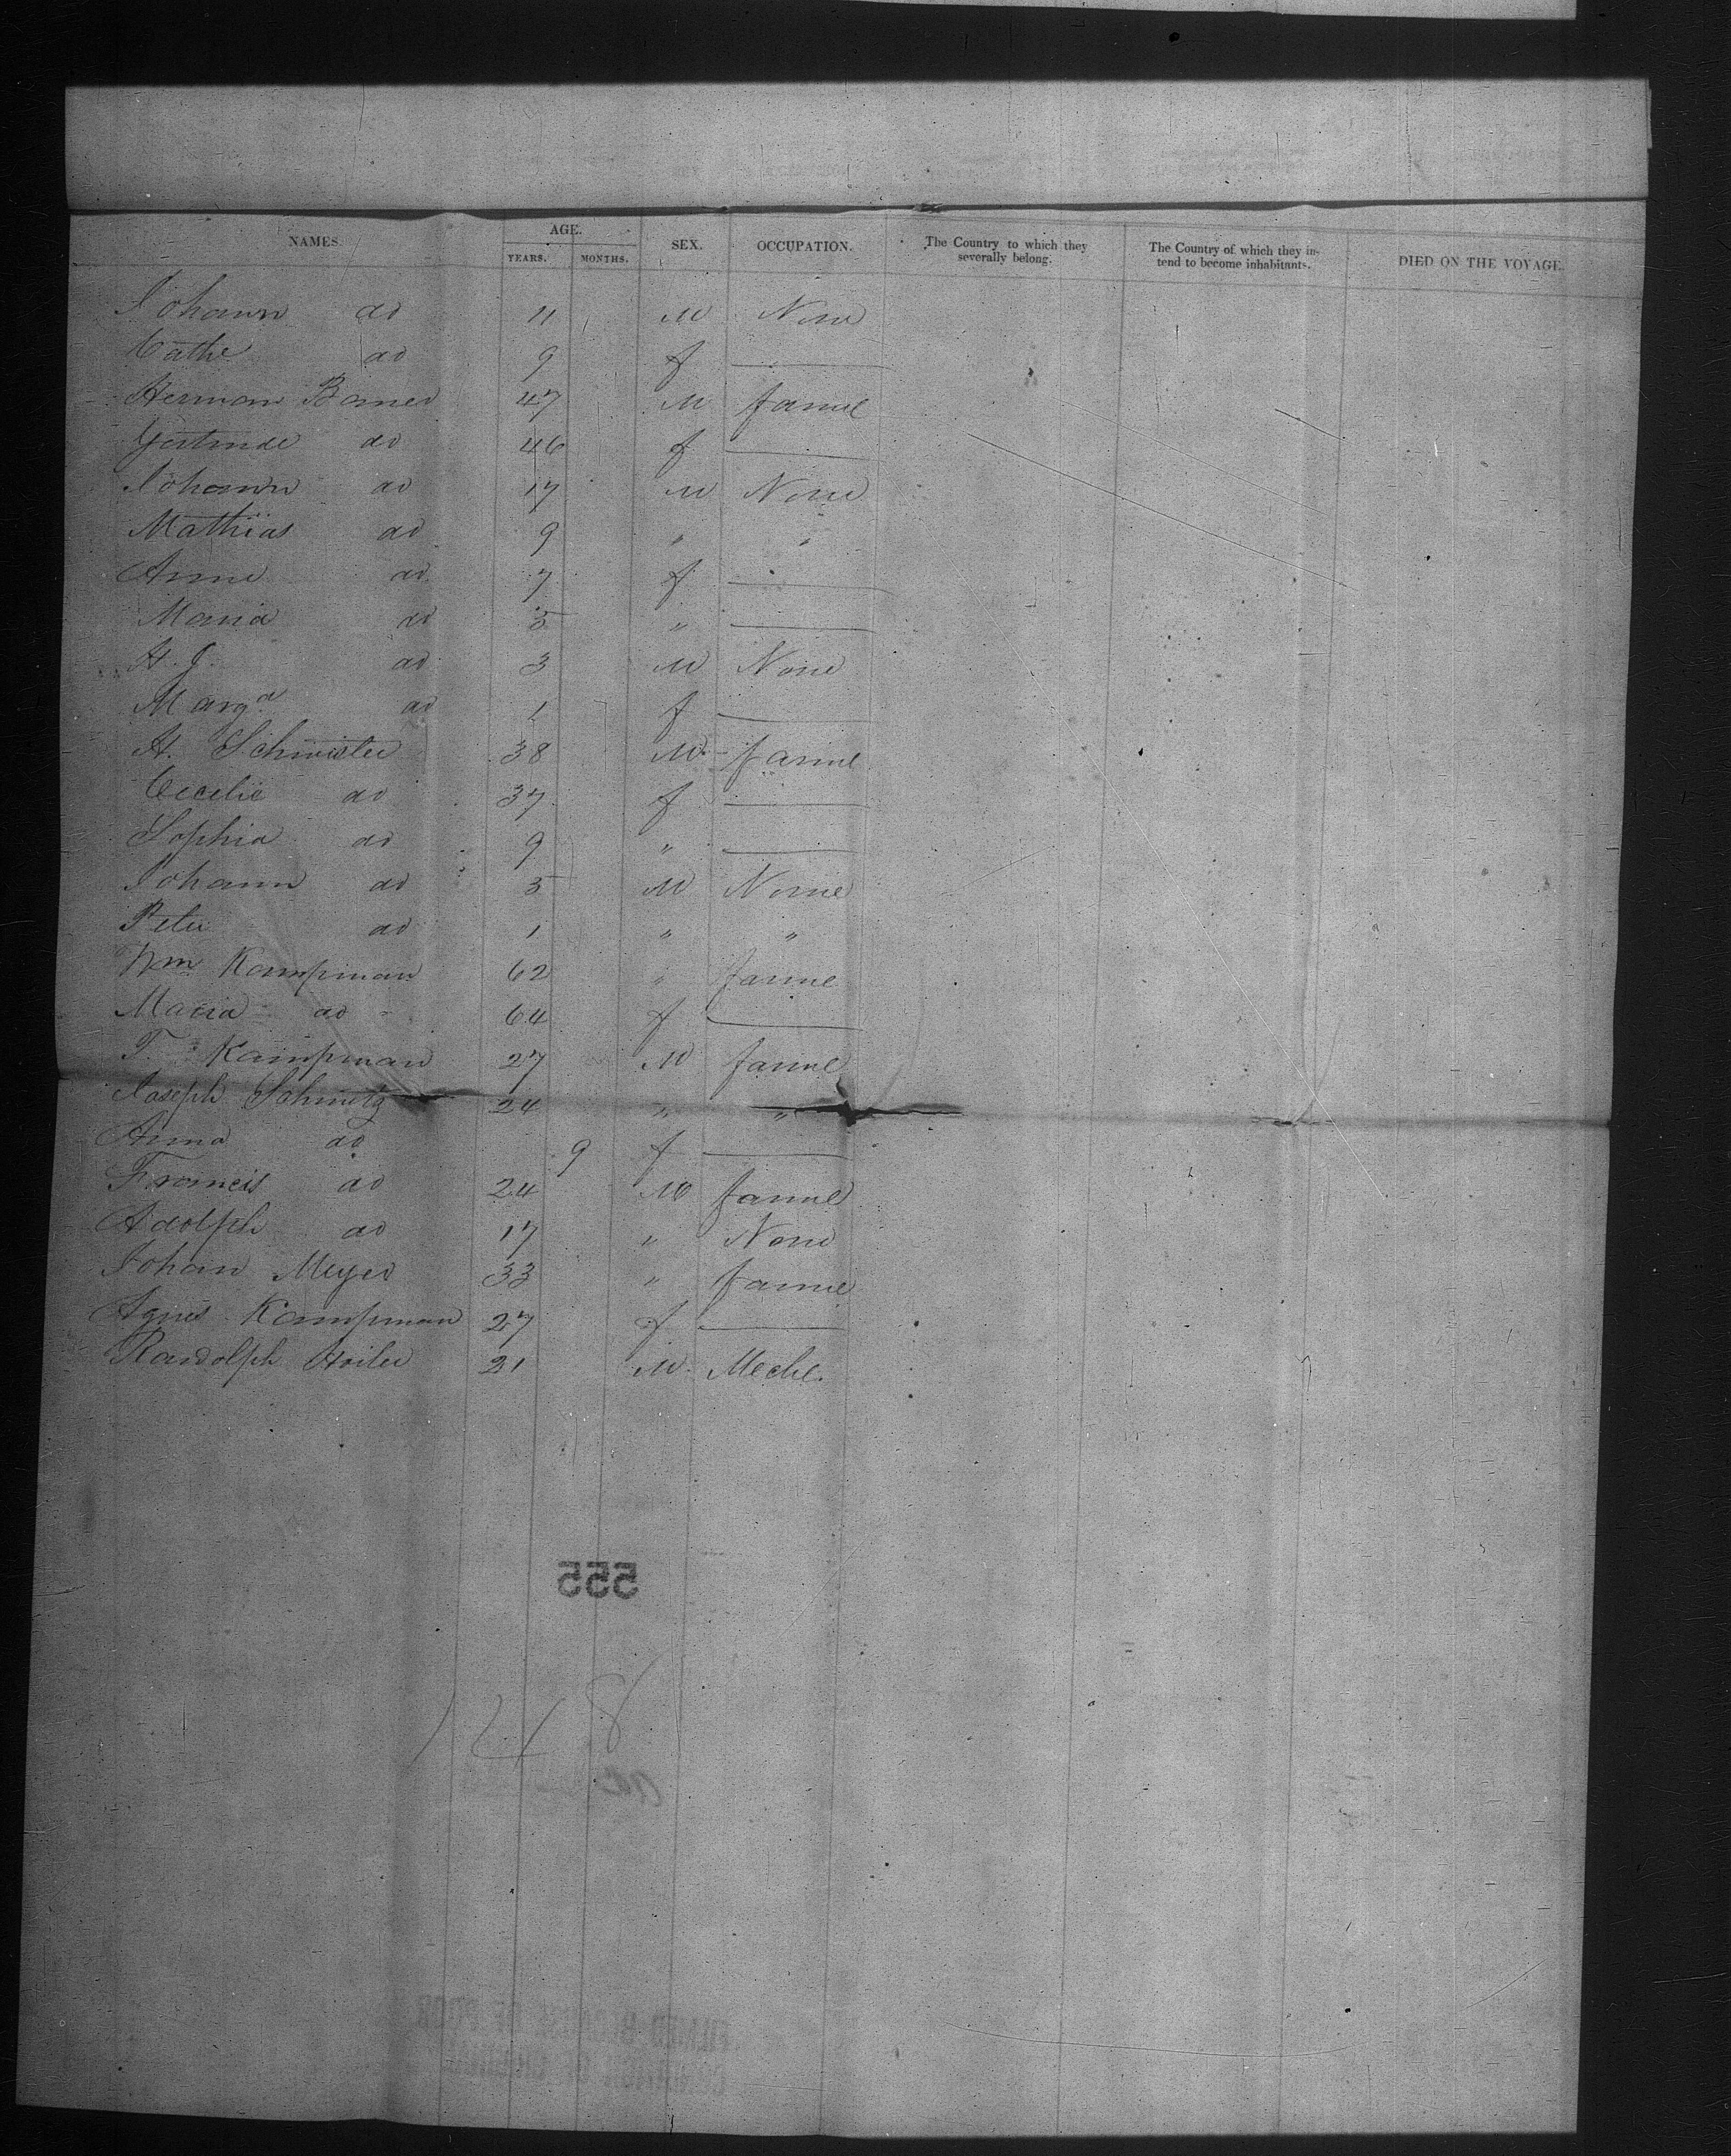 NAMES. AGE. SEX. OCCUPATION. The Country to which they severally belong. The Country of which they intend to become inhabitants. DIED ON THE VOYAGE.
YEARS. MONTHS.
Johann do 11 M None
Cathe do 9 f
Herman Bomer 47 M farme
Gertrude do 46 f
Johann do 17 M None
Mathias do 9 " "
Anne do 7 f
Maria do 5 "
H. J. do 3 M None
Marga do 1 f
H. Schwister 38 M farme
Cecelie do 37 f
Sophia do 9 "
Johann do 5 M None
Peter do 1 " "
Wm Kampman 62 " farme
Maria do 64 f
T. Kampman 27 M farme
Joseph Schmitz 24 " "
Anna do 9 f
Francis do 24 M farme
Adolph do 17 " None
Johan Meyer 33 " farme
Agnes Kampman 27 f
Randolph 21 M Meche.
555
1248
FILMED BECAUSE OF POOR
CONDITION OF ORIGINAL